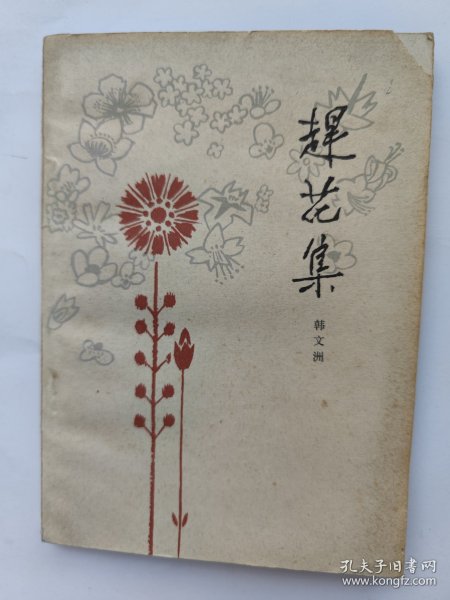 趕花集
韩文洲
孔夫子旧书网
www.kongfz.com